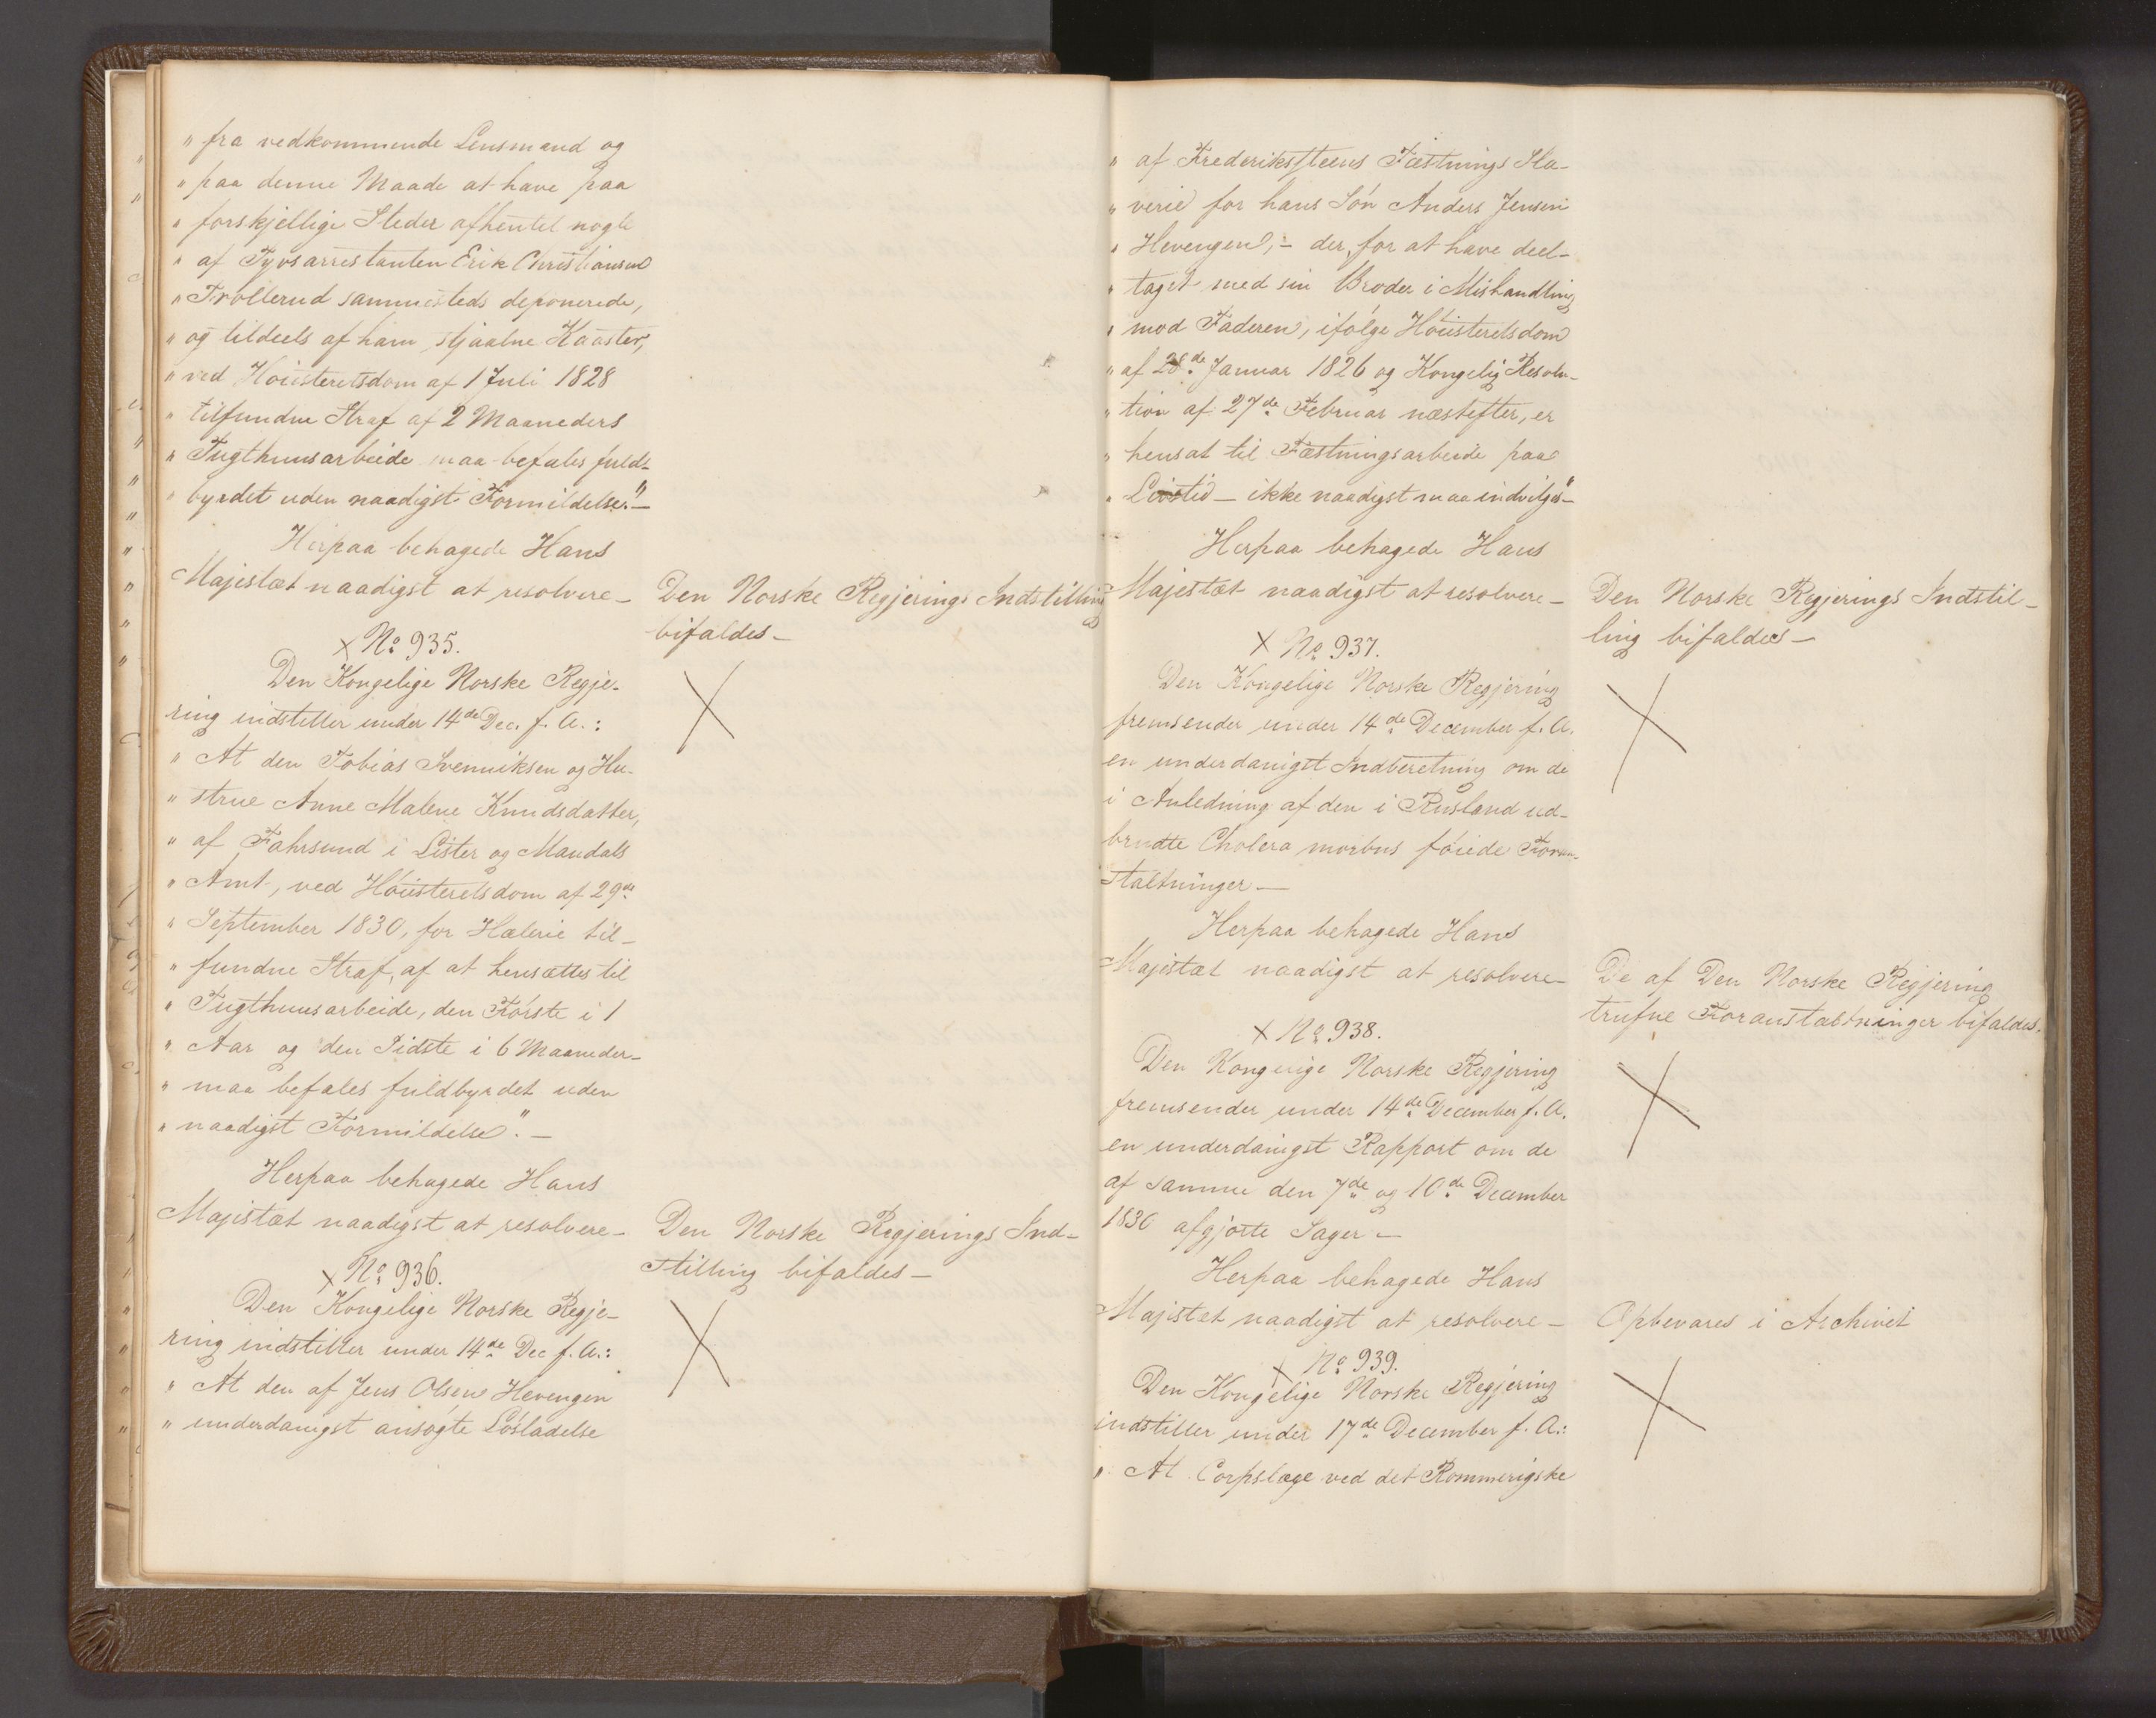 " fra vedkommende Lensmand og
" paa denne Maade at have paa
" forskjellige Steder afhentet nogle
" af Tyvsarrestanten Erik Christiansen
" Trollerud sammesteds deponerede,
" og tildeels af ham stjaalne Kaaster,
" ved Høiesteretsdom af 1 Juli 1828
" tilfundne Straf af 2 Maaneders
" Tugthuusarbeide maa befales fuld-
" byrdet uden naadigst Formildelse." —
Herpaa behagede Hans
Majestæt naadigst at resolvere —
Den Norske Regjerings Indstilling
bifaldes —
x No 935.
Den Kongelige Norske Regje-
ring indstiller under 14de Dec. f. A.:
" At den Tobias Svenniksen og Hu-
" strue Anne Malene Knudsdatter,
" af Fahrsund i Lister og Mandals
" Amt, ved Høiesteretsdom af 29de
" September 1830, for Hæleri til-
" fundne Straf, af at hensættes til
" Tugthuusarbeide, den Første i 1
" Aar og den Sidste i 6 Maaneder —
" maa befales fuldbyrdet uden
" naadigst Formildelse". —
Herpaa behagede Hans
Majestæt naadigst at resolvere —
Den Norske Regjerings Ind-
stilling bifaldes —
x No 936.
Den Kongelige Norske Regje-
ring indstiller under 14de Dec f. A.:
" At den af Jens Olsen Hevengen
" underdanigst ansøgte Løsladelse
" af Frederikssteens Fæstnings Sla-
" verie for hans Søn Anders Jensen
" Hevengen, — der, for at have deel-
" taget med sin Broder i Mishandling
" mod Faderen, ifølge Høiesteretsdom
" af 28de Januar 1826 og Kongelig Resolu-
" tion af 27de Februar næstefter, er
" hensat til Fæstningsarbeide paa
" Livstid — ikke naadigst maa indvilges" —
Herpaa behagede Hans
Majestæt naadigst at resolvere —
Den Norske Regjerings Indstil-
ling bifaldes —
x No 937.
Den Kongelige Norske Regjering
fremsender under 14de December f. A.
en underdanigst Indberetning om de
i Anledning af den i Rusland ud-
brudte Cholera morbus føiede Foran-
staltninger —
Herpaa behagede Hans
Majestæt naadigst at resolvere —
De af Den Norske Regjering
trufne Foranstaltninger bifaldes.
x No 938.
Den Kongelige Norske Regjering
fremsender under 14de December f. A.
en underdanigst Rapport om de
af samme den 7de og 10de December
1830 afgjorte Sager —
Herpaa behagede Hans
Majestæt naadigst at resolvere —
Opbevares i Archivet
x No 939.
Den Kongelige Norske Regjering
indstiller under 17de December f. A.:
" At Corpslæge ved det Rommerigske